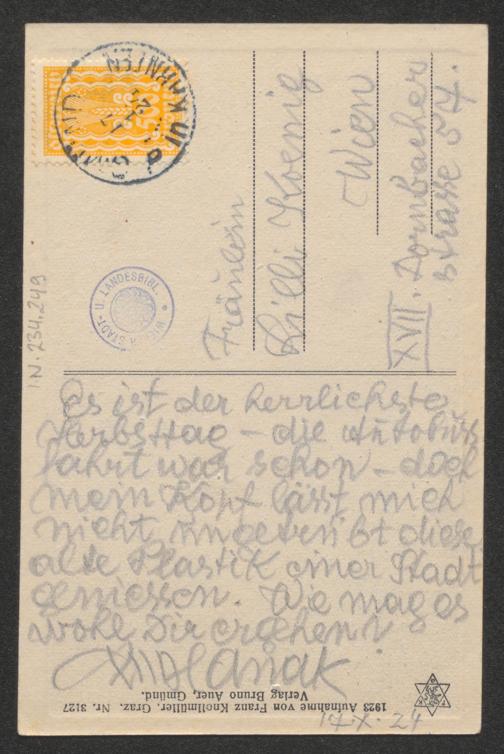 GMÜND IN KÄRNTEN
WIENER STADT- U. LANDESBIBL.
IN. 234.249
Fräulein
Lilli Koenig
Wien
XVII. Dornbacher
strasse 57.
Es ist der herrlichste
Herbsttag – die Autobus
fahrt war schön – doch
mein Kopf lässt mich
nicht ungetrübt diese
alte Plastik einer Stadt
geniessen. Wie mag es
wohl Dir ergehen?
1923 Aufnahme von Franz Knollmüller, Graz. Nr. 3127
Verlag Bruno Auer, Gmünd.
17.X.24